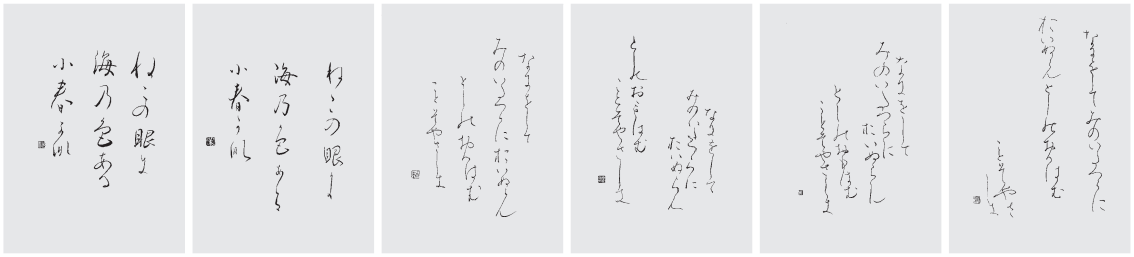 ねこの眼に
海乃色ある
小春可那
ねこの眼に
海乃色ある
小春可那
なにをして
みのいたつらにおいぬらん
としのおもはむ
ことそやさしき
なにをして
みのいたつらに
おいぬらん
としのおもはむ
ことそやさしき
なにをして
みのいたつらに
おいぬらん
としのおもはむ
ことそやさしき
なにをしてみのいたつらに
おいぬらんとしのおもはむ
ことそやさ
しき